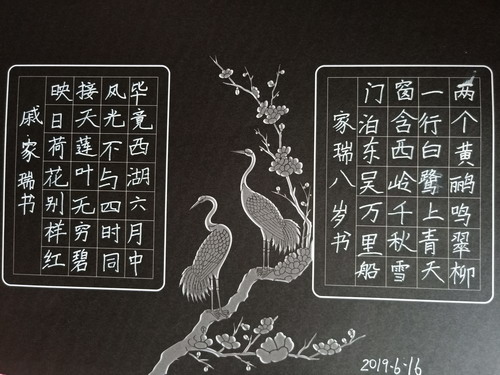 两个黄鹂鸣翠柳
一行白鹭上青天
窗含西岭千秋雪
门泊东吴万里船
家瑞八岁书
毕竟西湖六月中
风光不与四时同
接天莲叶无穷碧
映日荷花别样红
戚家瑞书
2019.6.16